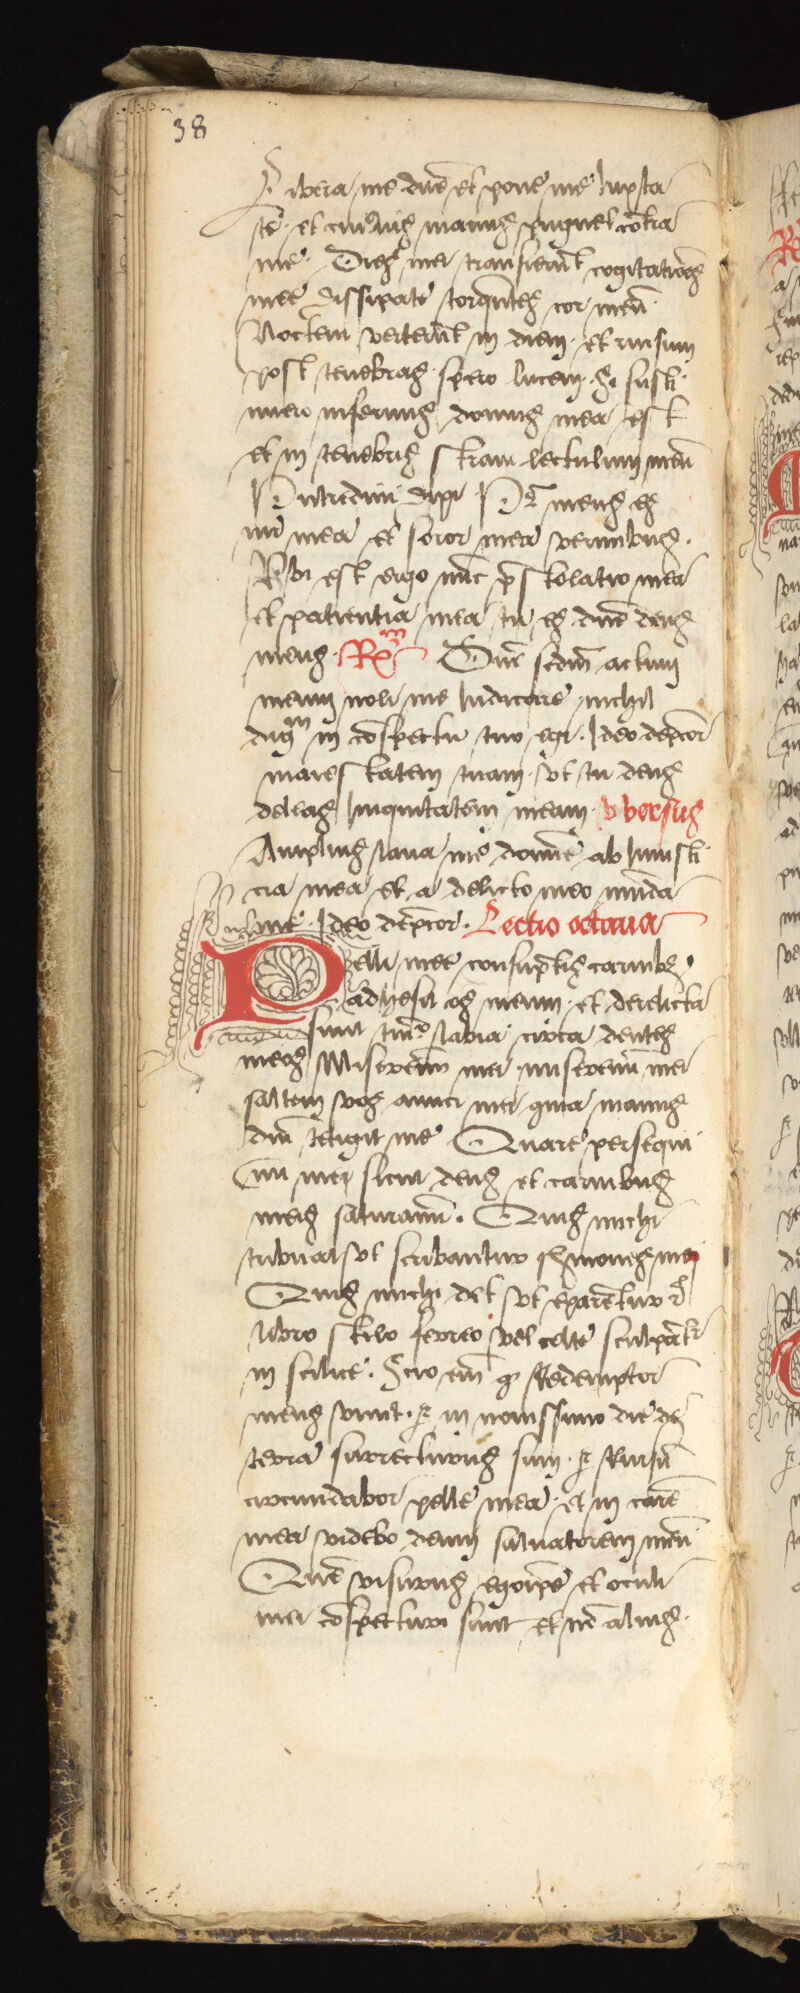 38
Libera me dne et pone me iuxta
te et cuiusuis manus pugnet cotra
me Dies mei transierut cogitationes
mee dissipate torquetes cor meu
Noctem verterut in diem et rursum
post tenebras spero lucem Si susti
nuero infernus domus mea est
et in tenebris straui lectulum meu
Putredini dixi Pr meus es
mr mea et soror mea vermibus
Vbi est ergo nuc prestolatio mea
et patientia mea tu es dne deus
meus Rm Dne scdm actum
meum noli me iudicare nichil
dignm in cospectu tuo egi Ideo depcor
maiestatem tuam vt tu deus
deleas iniquitatem meam v versus
Amplius laua me domie ab iniusti
cia mea et a delicto meo muda
me Ideo depcor Lectio octaua
Pelli mee consuptis carnibs
adhesit os meum et derelicta
sunt tm labia circa dentes
meos Miseremi mei miseremi mei
saltem vos amici mei quia manus
dni tetigit me Quare persequi
mi mei sicut deus et carnibus
meis saturami Quis michi
tribuat vt scribantur sermones mei
Quis michi det vt exarentur i
libro stilo ferreo vel celte sculpatr
in scilice Scio em q Redemptor
meus viuit et in nouissimo die de
terra surrecturus sum et Rursu
circumdabor pelle mea et in carne
mea videbo deum saluatorem meu
Que visurus egoipse et oculi
mei cospecturi sunt et no alius